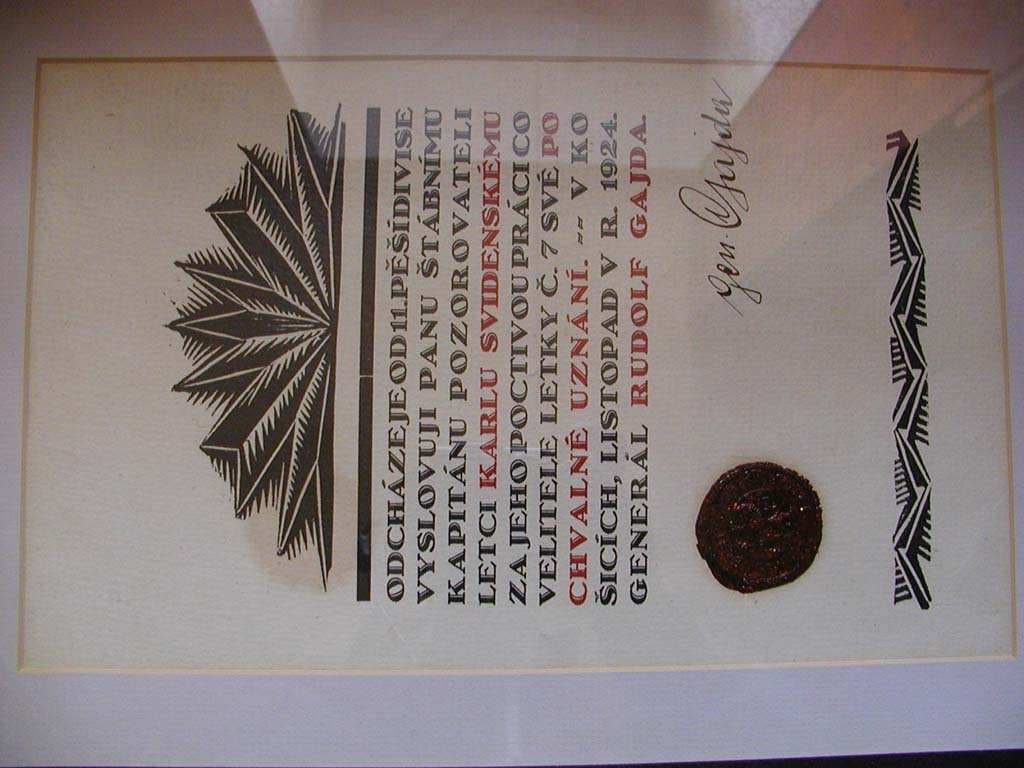 ODCHÁZEJE OD 11. PĚŠÍ DIVISE
VYSLOVUJI PANU ŠTÁBNÍMU
KAPITÁNU POZOROVATELI
LETCI KARLU SVIDENSKÉMU
ZA JEHO POCTIVOU PRÁCI CO
VELITELE LETKY Č. 7 SVÉ PO
CHVALNÉ UZNÁNÍ. ~~ V KO
ŠICÍCH, LISTOPAD V R. 1924.
GENERÁL RUDOLF GAJDA.
gen. RGajda